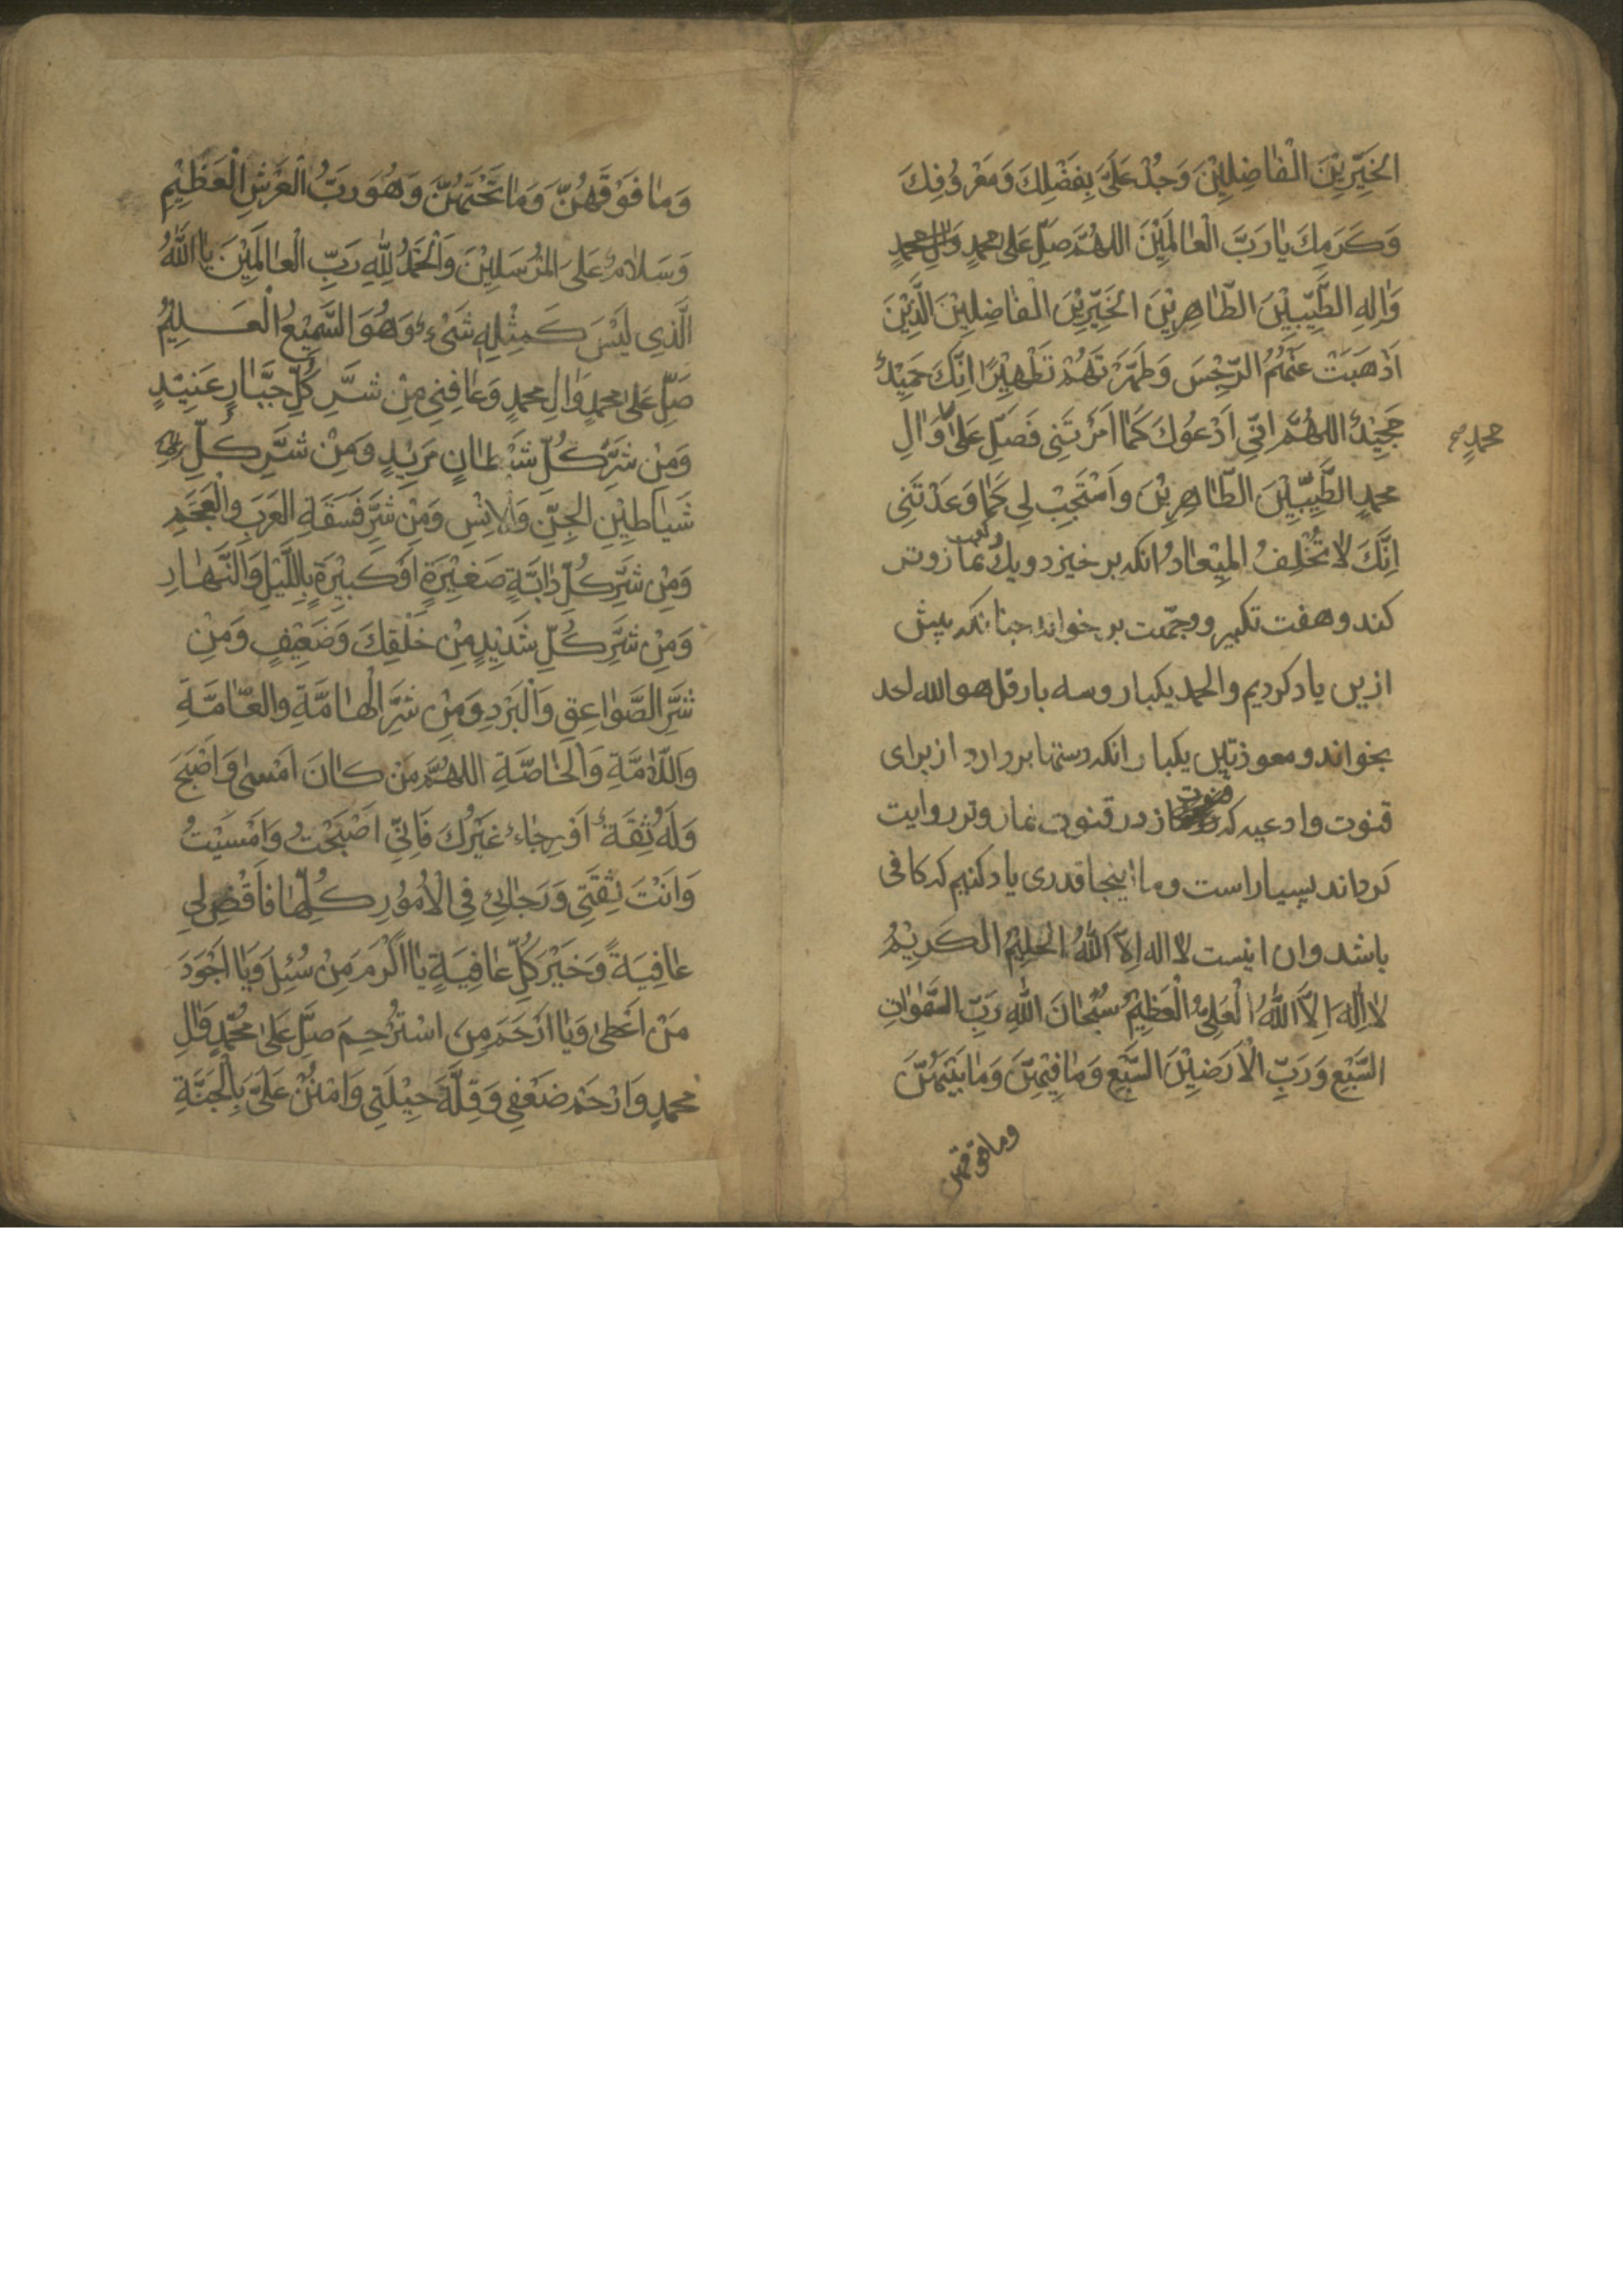 الخَيِّرِيْنَ الْفٰاضِلِيْنَ وَجُدْ عَلَىَّ بِفَضْلِكَ وَمَعْرُوُفِكَ
وَكَرَمِكَ يٰا رَبَّ الْعٰالَمِيْنَ اللهُمَّ صَلِّ عَلى محمدٍ وَالِ محمدٍ
وَاٰلِهِ الطَّيِّبِيْنَ الطّٰاهِرِيْنَ الخَيِّرِيْنَ الْفٰاضِلِيْنَ الَّذِيْنَ
اَذْهَبْتَ عَنْهُمُ الرِّجْسَ وَطَهَّرْتَهُمْ تَطْهِيْرًا اِنَّكَ حَمِيْدٌ
مَجِيْدٌ اللهُمَّ اِنّي اَدْعُوُكَ كَمٰا اَمَرْتَنِى فَصَلِّ عَلىٰ وَّاٰلِ
محمدٍ صح
محمدٍ الطَّيِّبِيْنَ الطّٰاهِرِيْنَ وَاسْتَجِبْ لِي كَمٰا وَعَدْتَنِى
اِنَّكَ لاٰ تُخْلِفُ المِيْعٰادُ انكه برخيزد ويك ركعت نماز وتر
كند وهفت تكبير ووجّهت برخواند چنانكه پيش
ازين ياد كرديم والحمد يكبار وسه بار قل هو الله احد
بخواند ومعوذتين يكبار انكه دستها بردارد از براى
قنوت وادعيه كه قنوت از در قنوت نماز وتر روايت
كرده‌اند بسيار است وما اينجا قدرى ياد كنيم كه كافى
باشد وان اينست لا اله اِلاّ اَللهُ الْحَلِيْمُ الْكَرِيْمُ
لاٰ اِلٰهَ اِلاَّ اللهُ الْعَلِىُّ الْعَظِيْمُ سُبْحٰانَ اللهِ رَبِّ السَّمٰوٰاتِ
السَّبْعِ وَرَبِّ الْاَرَضِيْنَ السَّبْعِ وَمٰا فِيْهِنَّ وَمٰا بَيْنَهُنَّ
وما فوقهن
وَمٰا فَوْقَهُنَّ وَمٰا تَحْتَهُنَّ وَهُوَ رَبُّ الْعَرْشِ الْعَظِيْمِ
وَسَلاٰمٌ عَلَى المُرْسَلِيْنَ وَالْحَمْدُ لِلّٰهِ رَبِّ الْعٰالَمِيْنَ يٰا اَللهُ
الَّذِي لَيْسَ كَمِثْلِهِ شَىْءٌ وَهُوَ السَّمِيْعُ الْعَلِيْمُ
صَلِّ عَلىٰ محمدٍ وَاٰلِ محمدٍ وَعٰافِنِي مِنْ شَرِّ كُلِّ جَبّٰارٍ عَنِيْدٍ
وَمِنْ شَرِّ كُلِّ شَيْطٰانٍ مَرِيْدٍ وَمِنْ شَرِّ كُلِّ
شَيٰاطِيْنِ الجِنِّ وَالْاِنْسِ وَمِنْ شَرِّ فَسَقَةِ العَرَبِ وَالْعَجَمِ
وَمِنْ شَرِّ كُلِّ دٰابَّةٍ صَغِيْرَةٍ اَوْ كَبِيْرَةٍ بِاللَّيْلِ وَالنَّهٰارِ
وَمِنْ شَرِّ كُلِّ شَدِيْدٍ مِنْ خَلْقِكَ وَضَعِيْفٍ وَمِنْ
شَرِّ الصَّوٰاعِقِ وَالْبَرَدِ وَمِنْ شَرِّ الْهٰامَّةِ والعٰامَّةِ
وَاللّاٰمَّةِ وَالخٰاصَّةِ اللهُمَّ مَنْ كٰانَ اَمْسىٰ وَاَصْبَحَ
وَلَهُ ثِقَةٌ اَوْ رِجٰاءٌ غَيْرُكَ فَاِنّي اَصْبَحْتُ وَاَمْسَيْتُ
وَاَنْتَ ثِقَتِى وَرَجٰائِي فِي الْاُمُوُرِ كُلِّهٰا فَاَقْضِ لِي
عٰافِيَةً وَخَيْرَ كُلِّ عٰافِيَةٍ يٰا اَكْرَمَ مَنْ سُئِلَ وَيٰا اَجْوَدَ
مَنْ اَعْطىٰ وَيٰا اَرْحَمَ مِن اسْتُرْحِمَ صَلِّ عَلىٰ مُحَمّدٍ وَاٰلِ
محمدٍ وَارْحَمْ ضَعْفِي وَقِلَّةَ حِيْلَتِي وَامْنُنْ عَلَىَّ بِالْجَنَّةِ